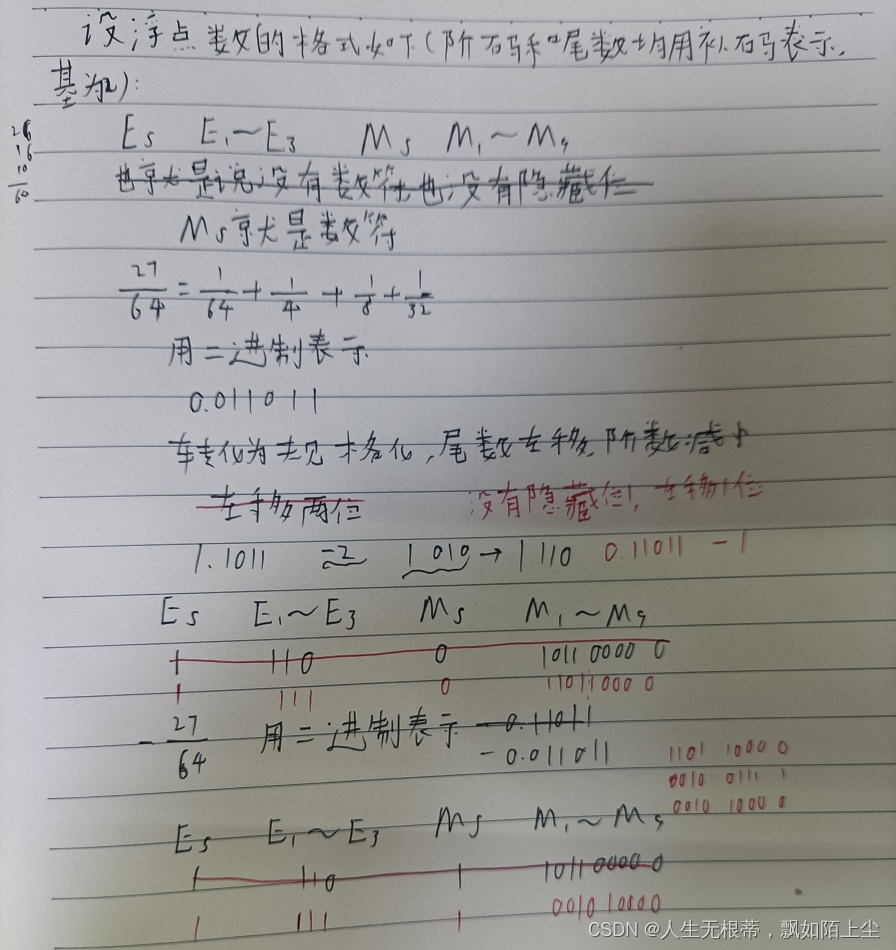 设浮点数的格式如下(阶码和尾数均用补码表示,
基为2):
Es E₁~E₃ Ms M₁~M₉
26
16
10
60
也就是说没有数符也没有隐藏位
Ms就是数符
27/64 = 1/64 + 1/4 + 1/8 + 1/32
用二进制表示
0.011011
转化为规格化,尾数左移,阶数减小
左移两位 没有隐藏位!,左移1位
1.1011 -2 1 010 → 1 110 0.11011 -1
Es E₁~E₃ Ms M₁~M₉
1 110 0 10110000 0
1 111 0 11011000 0
- 27/64 用二进制表示 -0.11011
-0.011011
1101 1000 0
0010 0111 1
0010 1000 0
Es E₁~E₃ Ms M₁~M₉
1 110 1 10110000 0
1 111 1 0010 1000 0
CSDN @人生无根蒂,飘如陌上尘